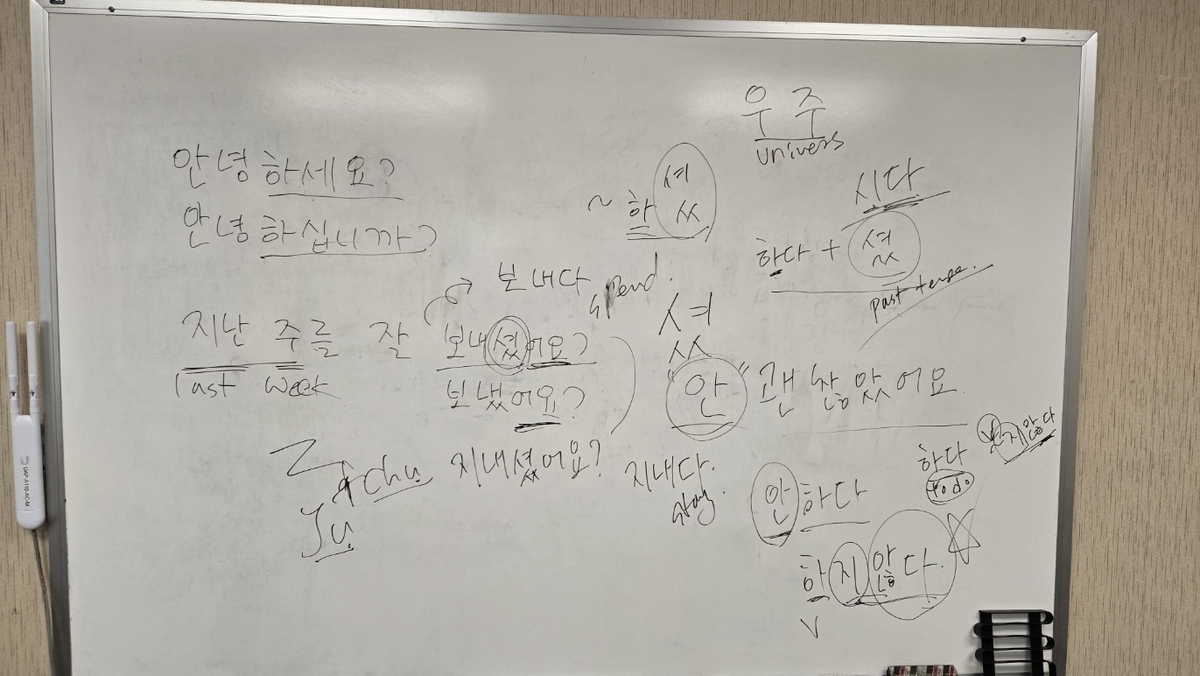 우주
univers
안녕하세요?
안녕하십니까?
~ 하셨
시다
하다 + 셨
past tense.
보내다
spend.
지난 주를 잘 보내셨어요?
last week
보냈어요?
셨
"안" 괜찮았어요
지내셨어요?
지내다.
stay
chu
Ju
하다
to do
V지않다
안하다
하지않다.
V